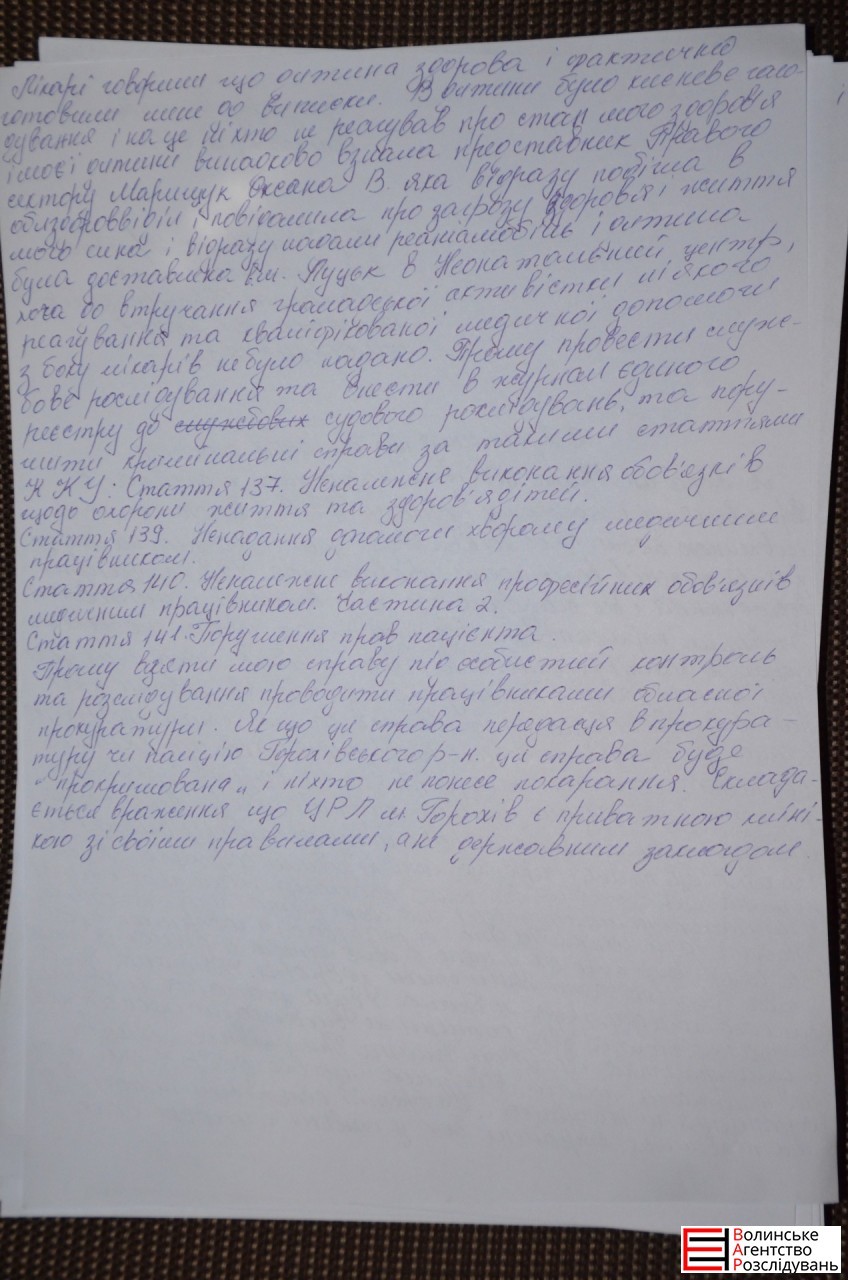 Лікарі говорили що дитина здорова і фактично
готовили мене до виписки. В дитини було кисневе голо-
дування і на це ніхто не реагував про стан мого здоров'я
і моєї дитини випадково взнала представник Правого
сектору Марищук Оксана В. яка відразу поїхала в
облздороввідділ і повідомила про загрозу здоров'я і життя
мого сина і відразу надали реанімобіль і дитина
була доставлена в м. Луцьк в Неонатальний центр,
хоча до втручання громадської активістки ніякого
реагування та кваліфікованої медичної допомоги
з боку лікарів не було надано. Прошу провести служ-
бове розслідування та внести в журнал єдиного
реєстру до службових судового розслідувань, та пору-
шити кримінальні справи за такими статтями
К К У: Стаття 137. Неналежне виконання обов'язків
щодо охорони життя та здоров'я дітей.
Стаття 139. Ненадання допомоги хворому медичним
працівником.
Стаття 140. Неналежне виконання професійних обов'язків
медичним працівником. Частина 2.
Стаття 141. Порушення прав пацієнта.
Прошу взяти мою справу під особистий контроль
та розслідування проводити працівниками обласної
прокуратури. Якщо ця справа передасця в прокура-
туру чи поліцію Горохівського р-н. ця справа буде
"прокришована" і ніхто не понесе покарання. Склада-
ється враження що ЦРЛ м Горохів є приватною кліні-
кою зі своїми правилами, а не державним закладом.
Волинське
Агентство
Розслідувань